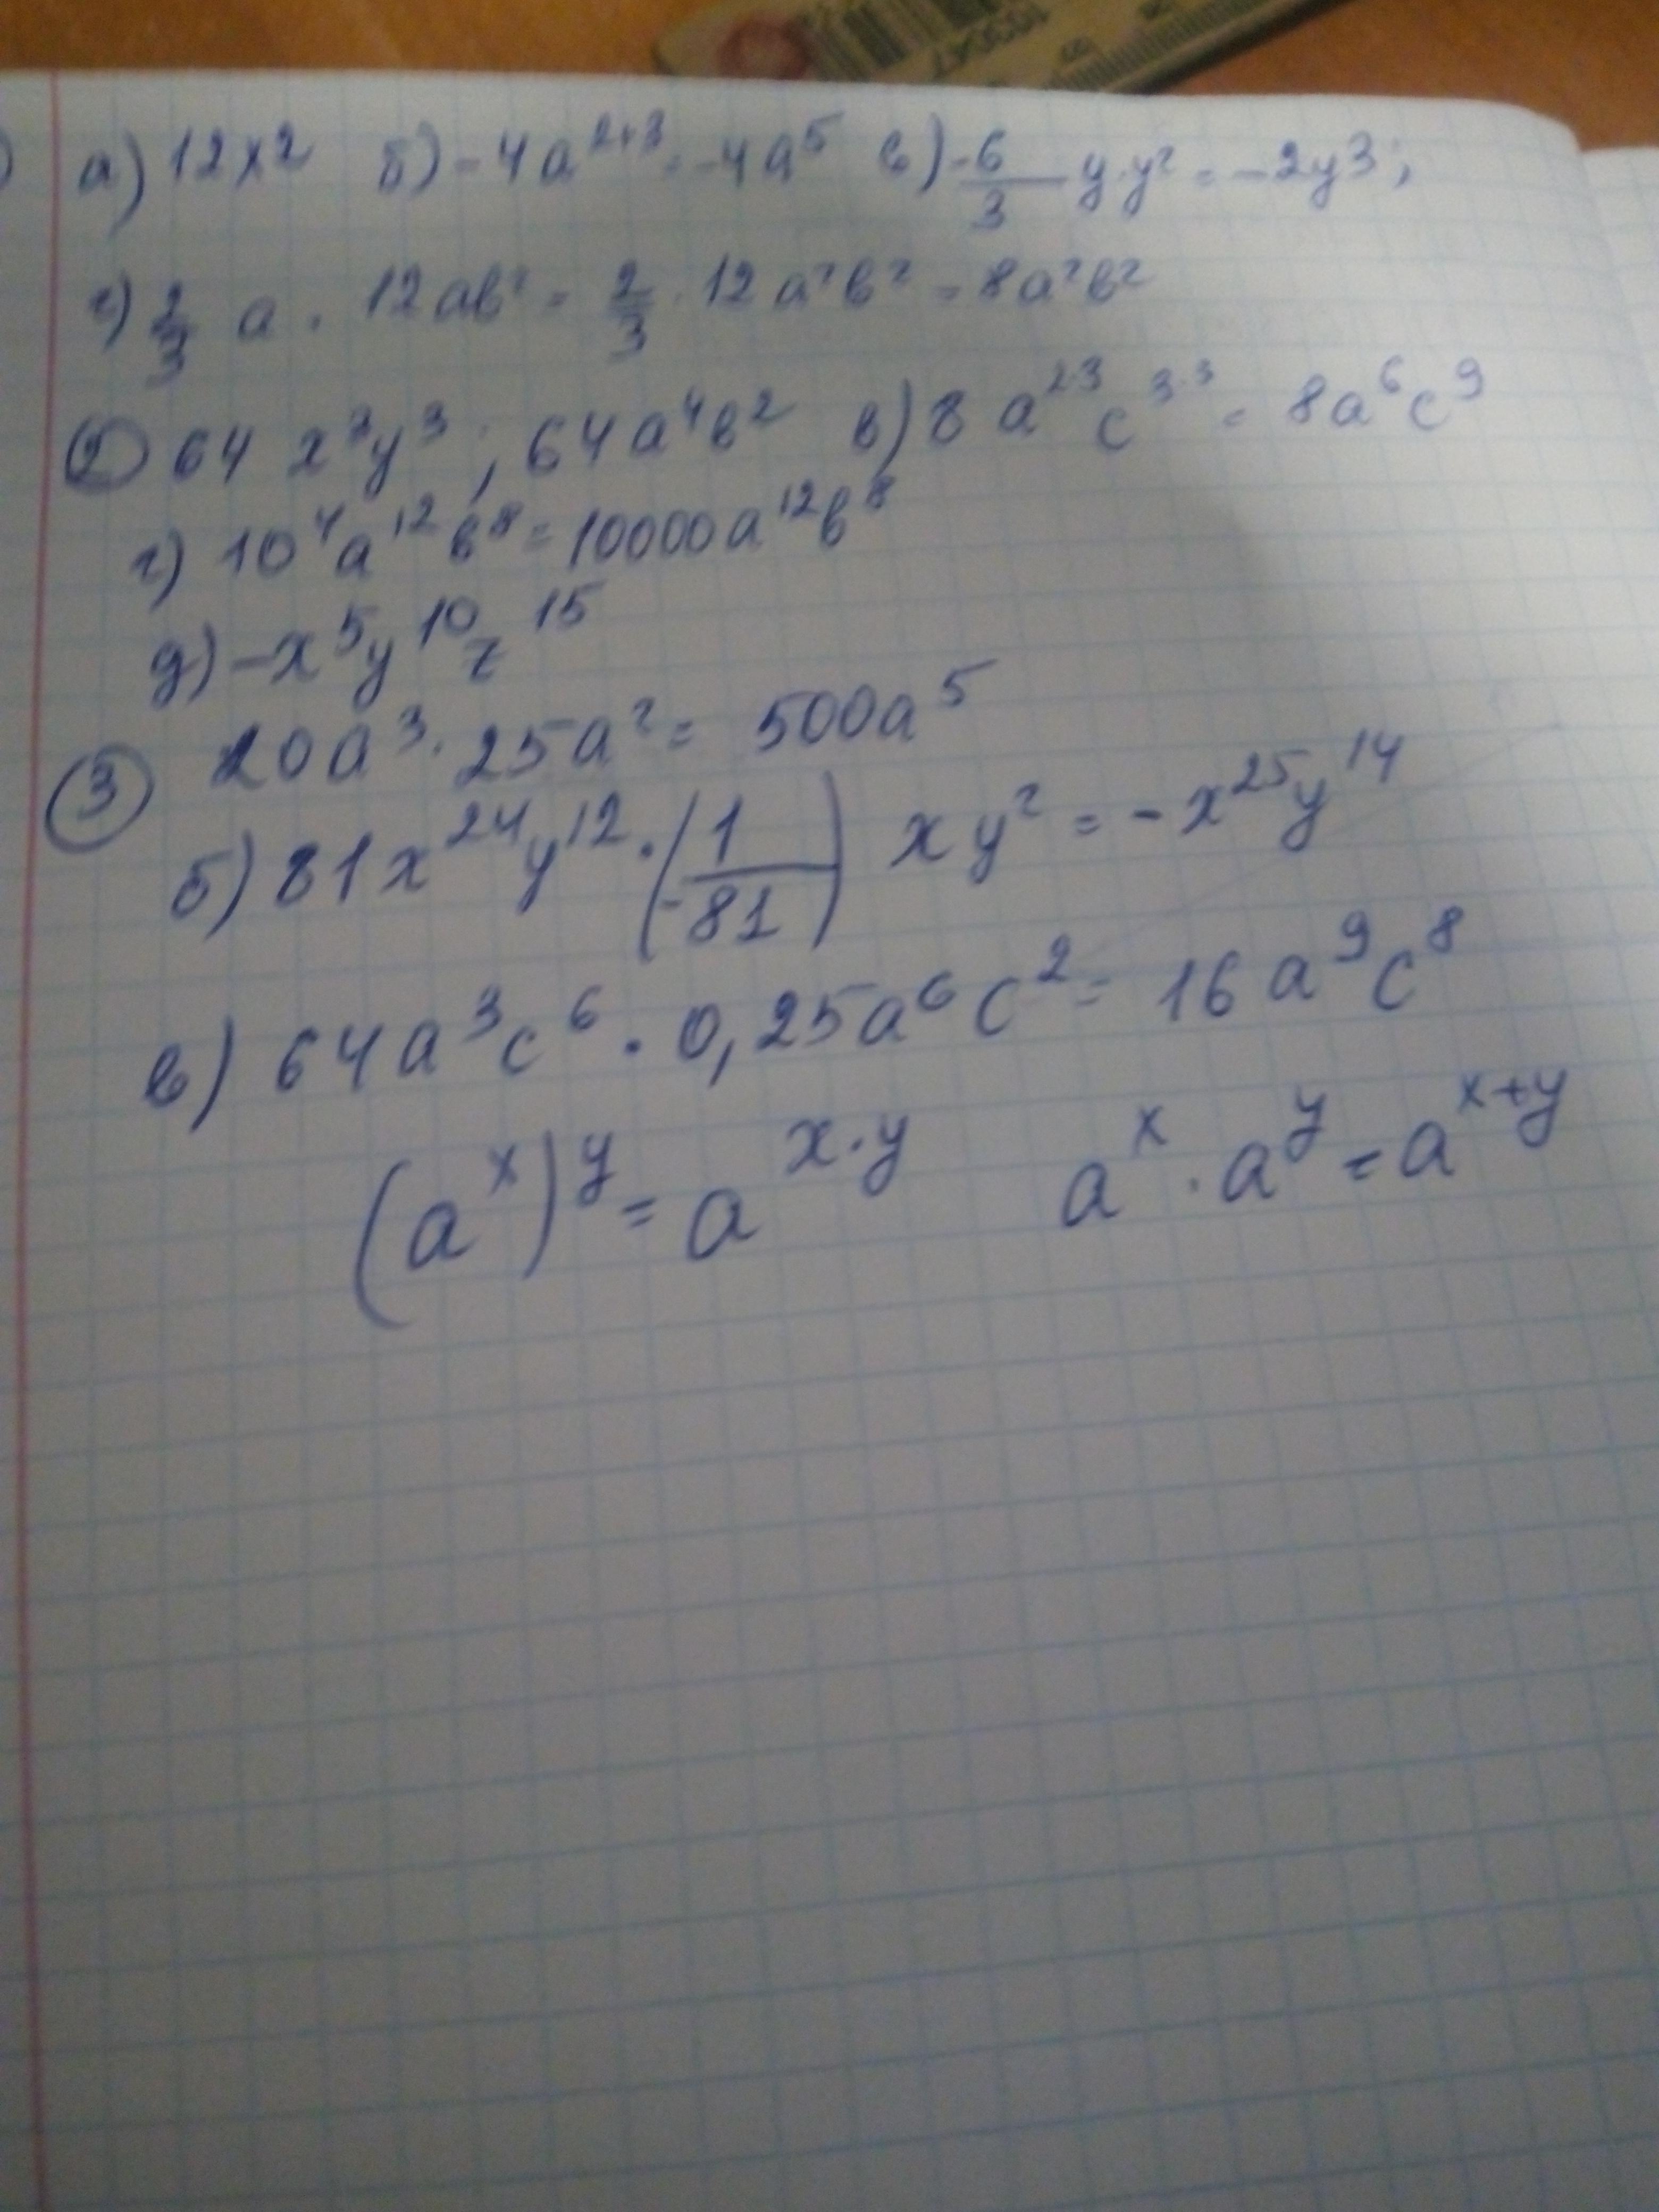 ) а) 12x2 б) -4a²⁺³ = -4a⁵ в) -6/3 y·y² = -2y3;
г) 2/3 a · 12ab² = 2/3 · 12a²b² = 8a²b²
② 64 x³y³; 64a⁴b² в) 8 a²·³c³·³ = 8a⁶c⁹
г) 10⁴a¹²b⁸ = 10000a¹²b⁸
д) -x⁵y¹⁰z¹⁵
③ 20a³·25a² = 500a⁵
б) 81x²⁴y¹²·(1/-81) xy² = -x²⁵y¹⁴
в) 64a³c⁶ · 0,25a⁶c² = 16a⁹c⁸
(aˣ)ʸ = aˣ·ʸ aˣ · aʸ = aˣ⁺ʸ